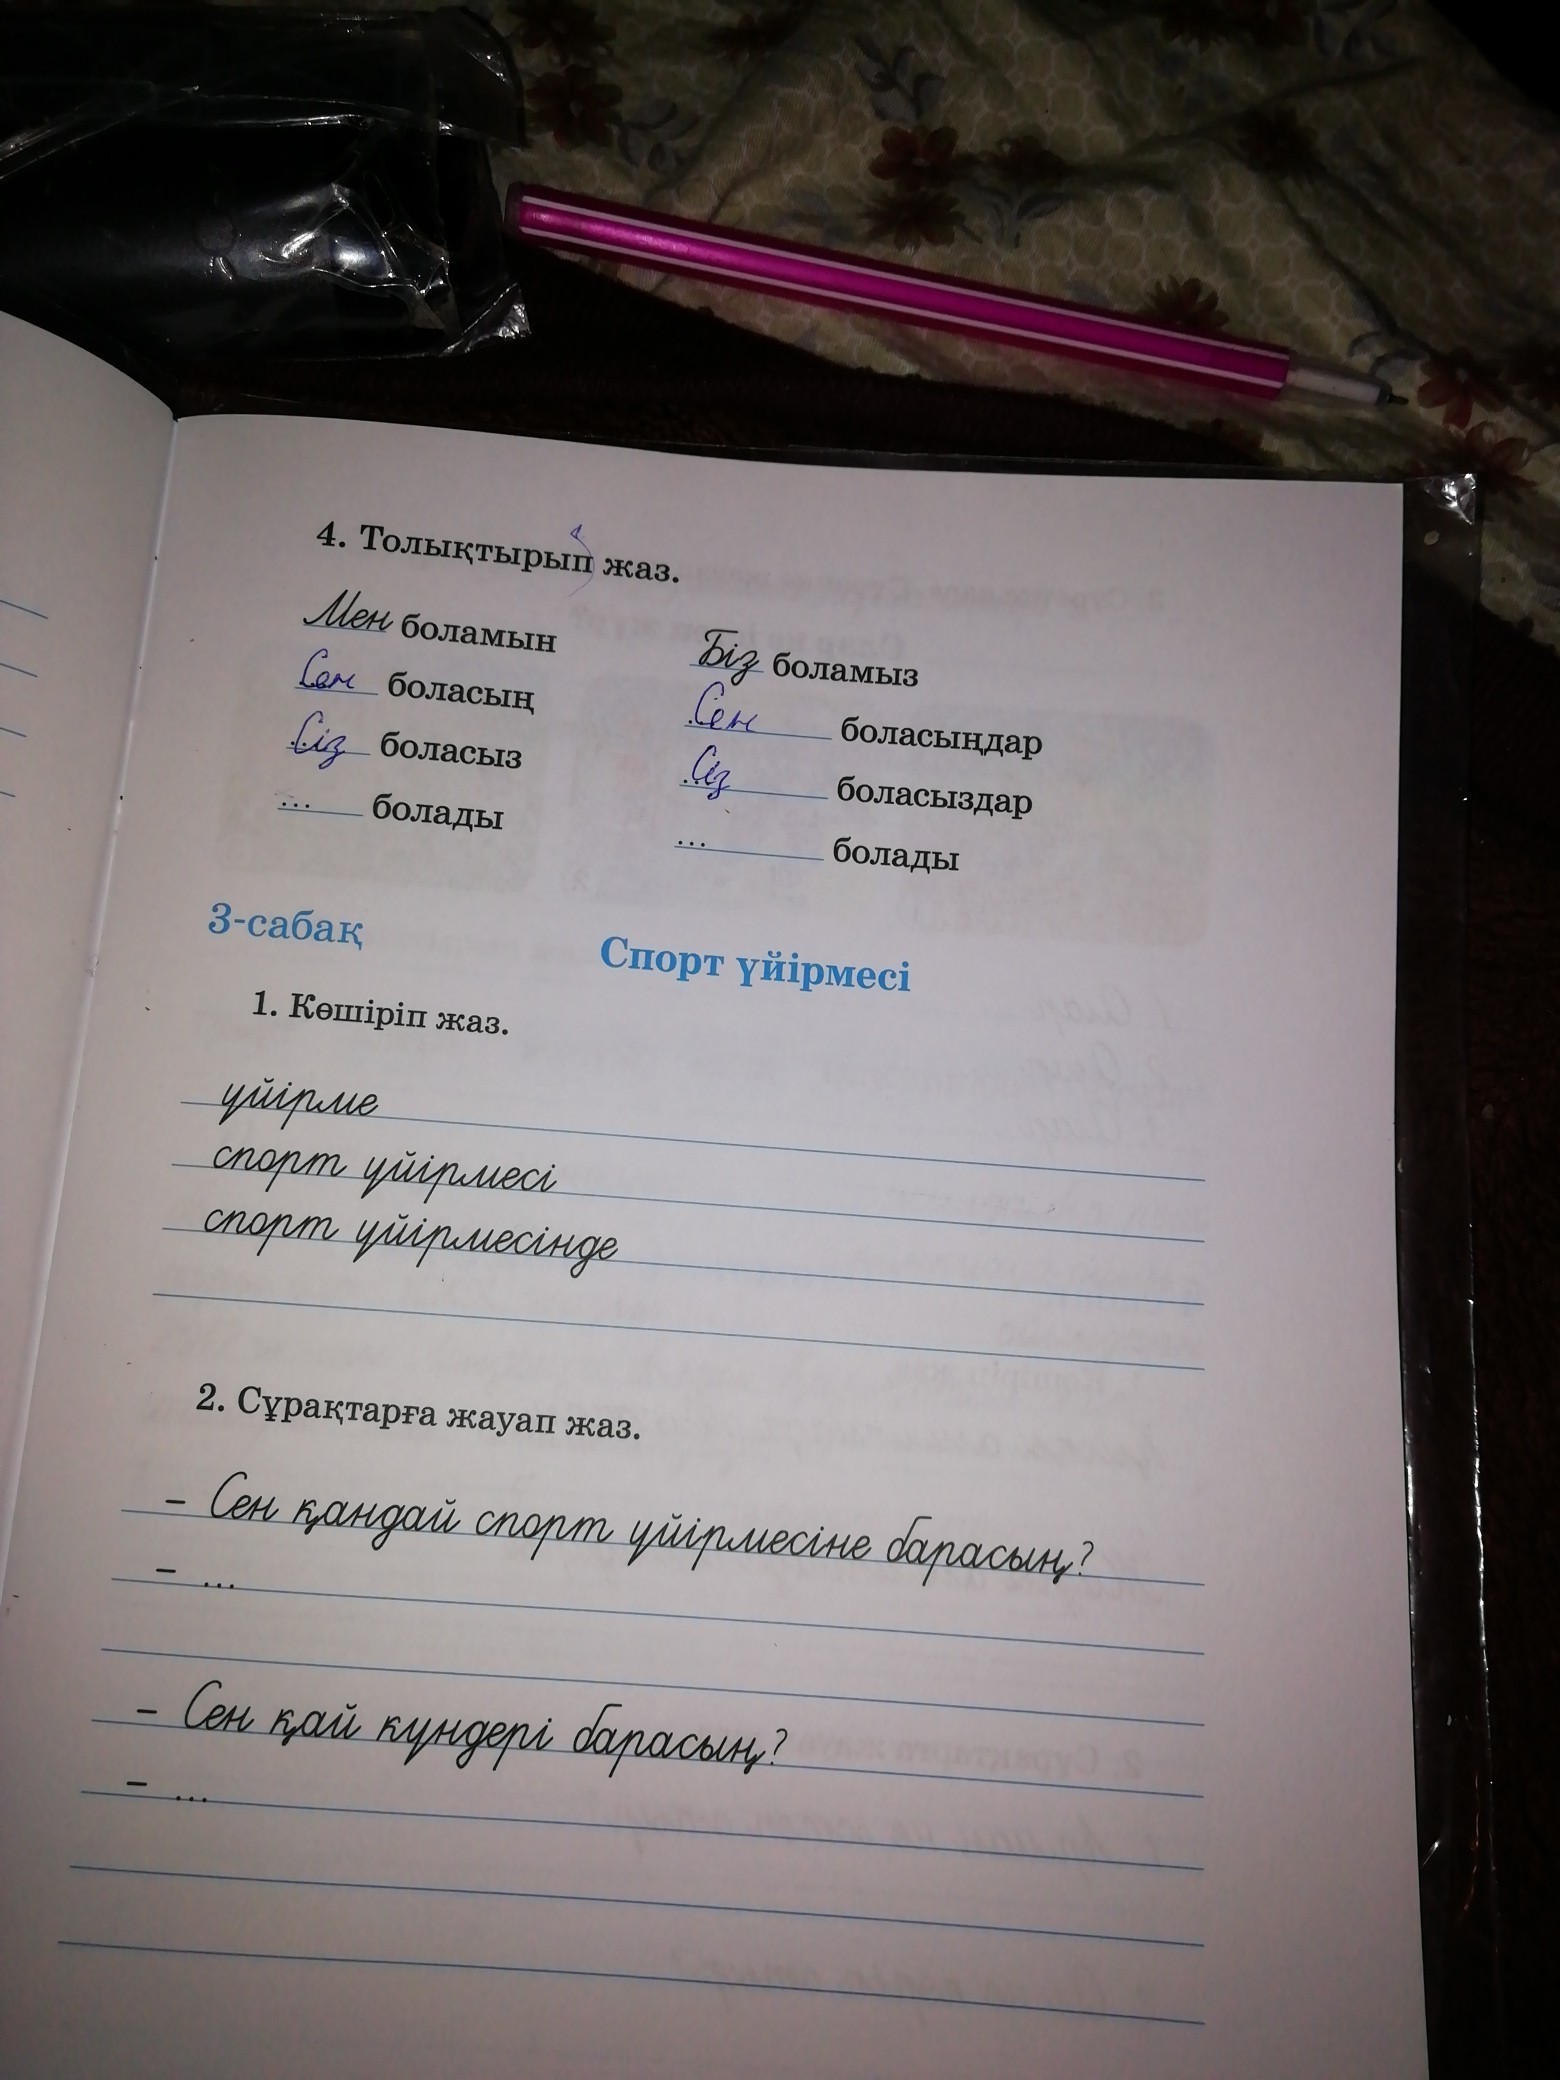 4. Толықтырып жаз.
Мен боламын
Сен боласың
Сіз боласыз
... болады
Біз боламыз
Сен боласыңдар
Сіз боласыздар
... болады
3-сабақ
Спорт үйірмесі
1. Көшіріп жаз.
үйірме
спорт үйірмесі
спорт үйірмесінде
2. Сұрақтарға жауап жаз.
– Сен қандай спорт үйірмесіне барасың?
– ...
– Сен қай күндері барасың?
– ...